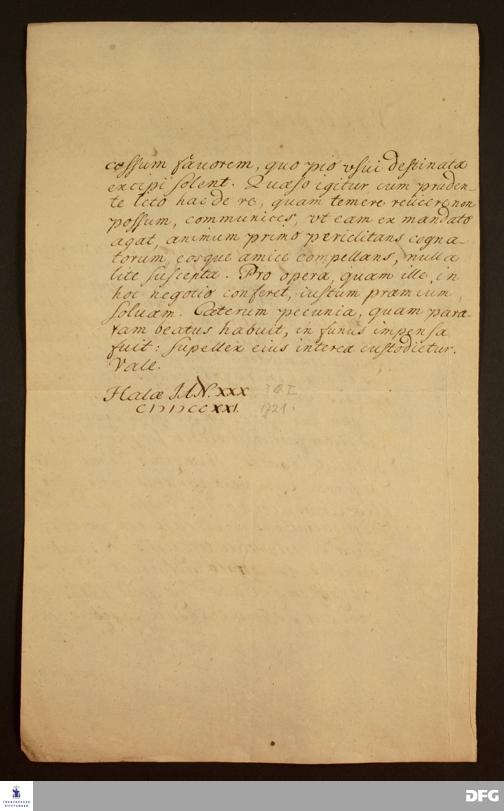 cessum fauorem, quo pio vsui destinata
excipi solent. Quæso igitur cum pruden-
te Icto hac de re, quam temere reiicere non
possum, communices, vt eam ex mandato
agat, animum primo periclitans cogna-
torum, eosque amice compellans, nulla
lite suscepta. Pro opera, quam ille in
hoc negotio conferet, iustum præmium
soluam. Cæterum pecunia, quam para-
ram beatus habuit, in funus impensa
fuit: supellex eius interea custodietur.
Vale.
Halæ IAN. XXX 30. I
CIƆIƆCCXXI. 1721.
FRANCKESCHE
STIFTUNGEN
DFG